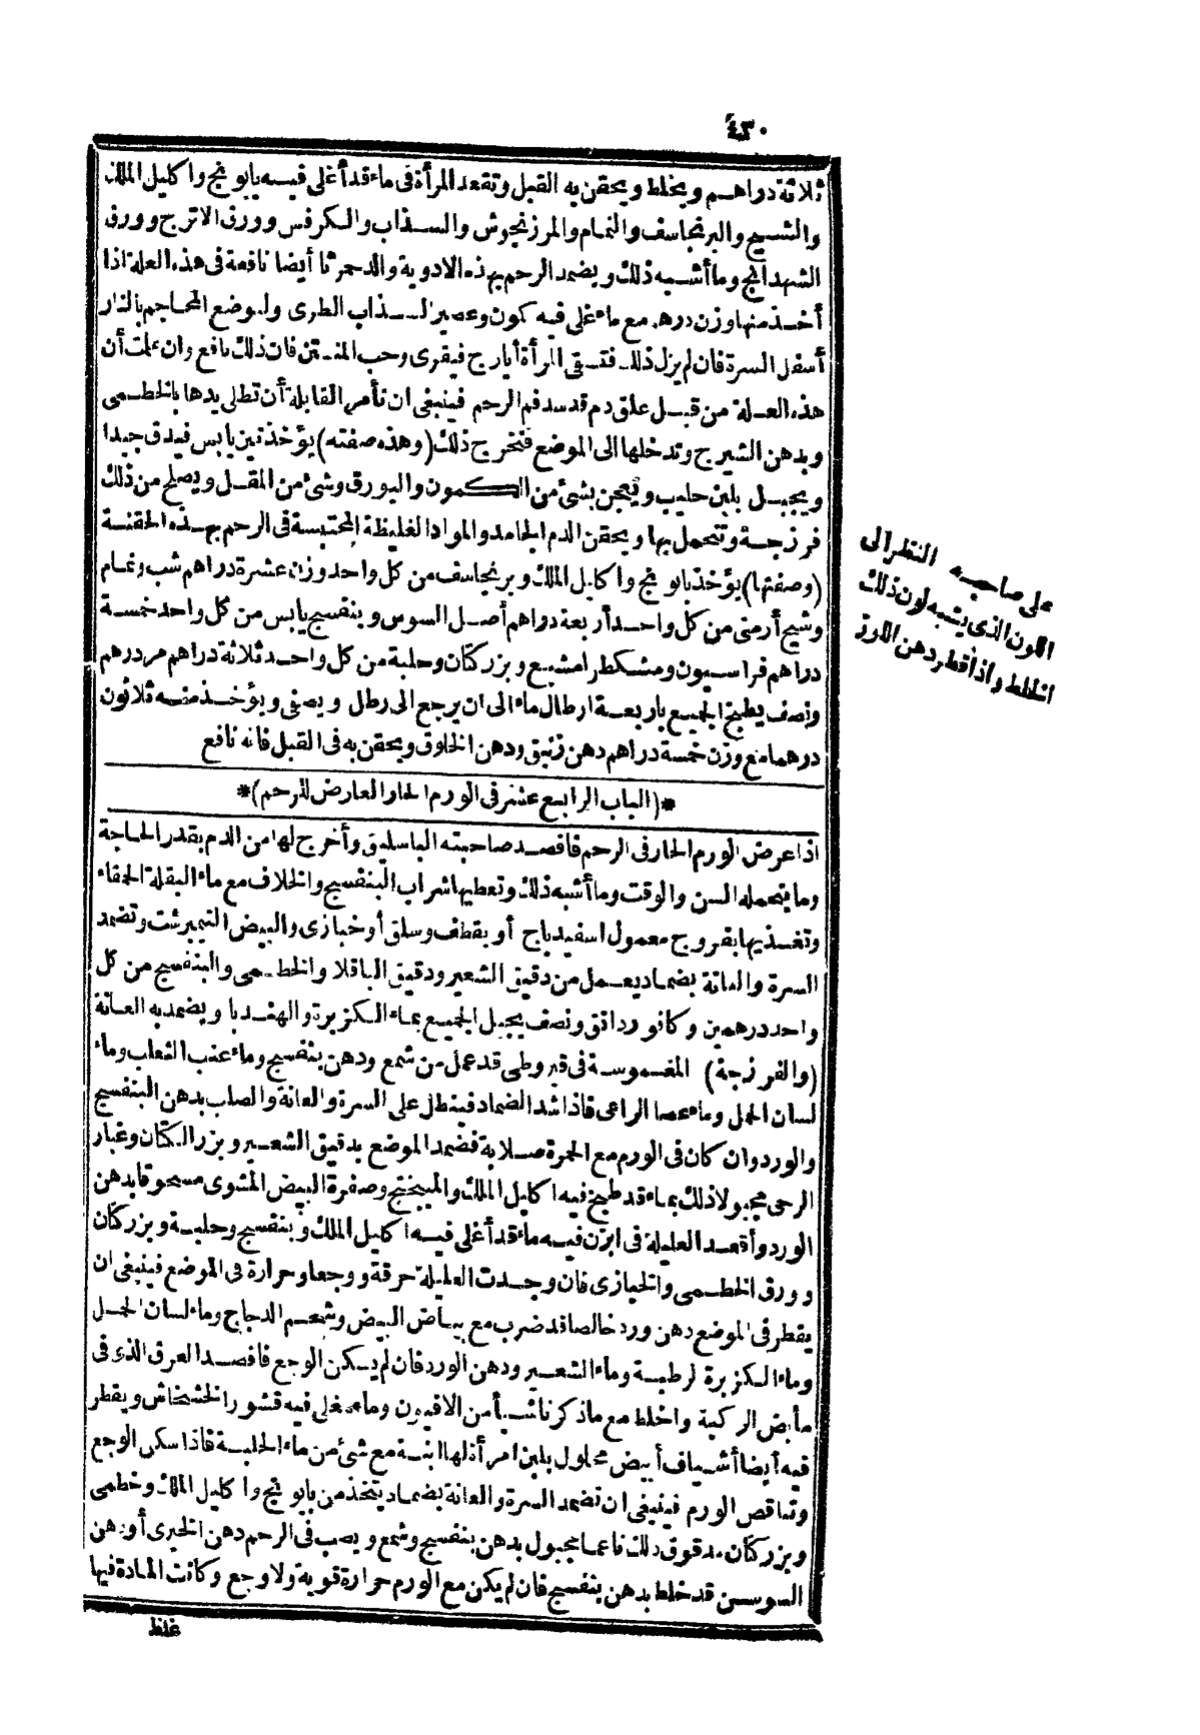 ٤٣٠
ثلاثة دراهم ويخلط ويحقن به القبل وتقعد المرأة فى ماء قد أغلى فيه بابونج واكليل الملك
والشيح والبرنجاسف والنمام والمرزنجوش والسذاب والكرفس وورق الاترج وورق
الشهدانج وما أشبه ذلك ويضمد الرحم بهذه الادوية والدحمرثا أيضا نافعة فى هذه العلة اذا
أخذ منها وزن درهم مع ماء غلى فيه كمون وعصير السذاب الطرى ولوضع المحاجم بالنار
أسفل السرة فان لم يزل ذلك فتسقى المرأة أيارج فيقرى وحب المنتن فان ذلك نافع وان علمت أن
هذه العلة من قبل علق دم قد سد فم الرحم فينبغى ان تأمر القابلة أن تطلى يدها بالخطمى
وبدهن الشيرج وتدخلها الى الموضع فتخرج ذلك (وهذه صفته) يؤخذ تين يابس فيدق جيدا
ويجبل بلبن حليب ويعجن بشئ من الكمون والبورق وشئ من المقل ويصلح من ذلك
فرزجة وتتحمل بها ويحقن الدم الجامد والمواد الغليظة المحتبسة فى الرحم بهذه الحقنة
(وصفتها) يؤخذ بابونج واكليل الملك وبرنجاسف من كل واحد وزن عشرة دراهم شب ونمام
وشيح أرمنى من كل واحد أربعة دراهم أصل السوس وبنفسج يابس من كل واحد خمسة
دراهم فراسيون ومشكطرامشيع وبزركتان وحلبة من كل واحد ثلاثة دراهم مر درهم
ونصف يطبخ الجميع باربعة ارطال ماء الى ان يرجع الى رطل ويصفى ويؤخذ منه ثلاثون
درهما مع وزن خمسة دراهم دهن زنبق ودهن الخلوق ويحقن به فى القبل فانه نافع
*(الباب الرابع عشر فى الورم الحار العارض للرحم)*
اذا عرض الورم الحار فى الرحم فافصد صاحبته الباسليق وأخرج لها من الدم بقدر الحاجة
وما يتحمله السن والوقت وما أشبه ذلك وتعطيها شراب البنفسج والخلاف مع ماء البقلة الحمقاء
وتغذيها بفروج معمول اسفيدباج أو بقطف وسلق أو خبازى والبيض النيمبرشت وتضمد
السرة والعانة بضماد يعمل من دقيق الشعير ودقيق الباقلا والخطمى والبنفسج من كل
واحد درهمين وكافور دانق ونصف يجبل الجميع بماء الكزبرة والهندبا ويضمد به العانة
(والفرزجة) المغموسة فى قيروطى قد عمل من شمع ودهن بنفسج وماء عنب الثعلب وماء
لسان الحمل وماء عصا الراعى فاذا شد الضماد فينطل على السرة والعانة والصلب بدهن البنفسج
والورد وان كان فى الورم مع الحمرة صلابة فضمد الموضع بدقيق الشعير وبزر الكتان وغبار
الرحى مجبولا ذلك بماء قد طبخ فيه اكليل الملك والميبختج وصفرة البيض المشوى مسحوقا بدهن
الورد وأقعد العليلة فى ابزن فيه ماء قد أغلى فيه اكليل الملك وبنفسج وحلبة وبزركتان
وورق الخطمى والخبازى فان وجدت العليلة حرقة ووجعا وحرارة فى الموضع فينبغى ان
يقطر فى الموضع دهن ورد خالصا قد ضرب مع بياض البيض وشحم الدجاج وماء لسان الحمل
وماء الكزبرة الرطبة وماء الشعير ودهن الورد فان لم يسكن الوجع فافصد العرق الذى فى
مأبض الركبة واخلط مع ما ذكرنا شيأ من الافيون وماء مغلى فيه قشور الخشخاش ويقطر
فيه أيضا أشياف أبيض محلول بلبن امرأة لها ابنة مع شئ من ماء الحلبة فاذا سكن الوجع
وتناقص الورم فينبغى ان تضمد السرة والعانة بضماد يتخذ من بابونج واكليل الملك وخطمى
وبزركتان مدقوق ذلك ناعما مجبول بدهن بنفسج وشمع ويصب فى الرحم دهن الخيرى أو دهن
السوسن قد خلط بدهن بنفسج فان لم يكن مع الورم حرارة قوية ولا وجع وكانت المادة فيها
غلظ
على صاحبه النظر الى
اللون الذى يشبه لون ذلك
الخلط واذا قطر دهن اللوز